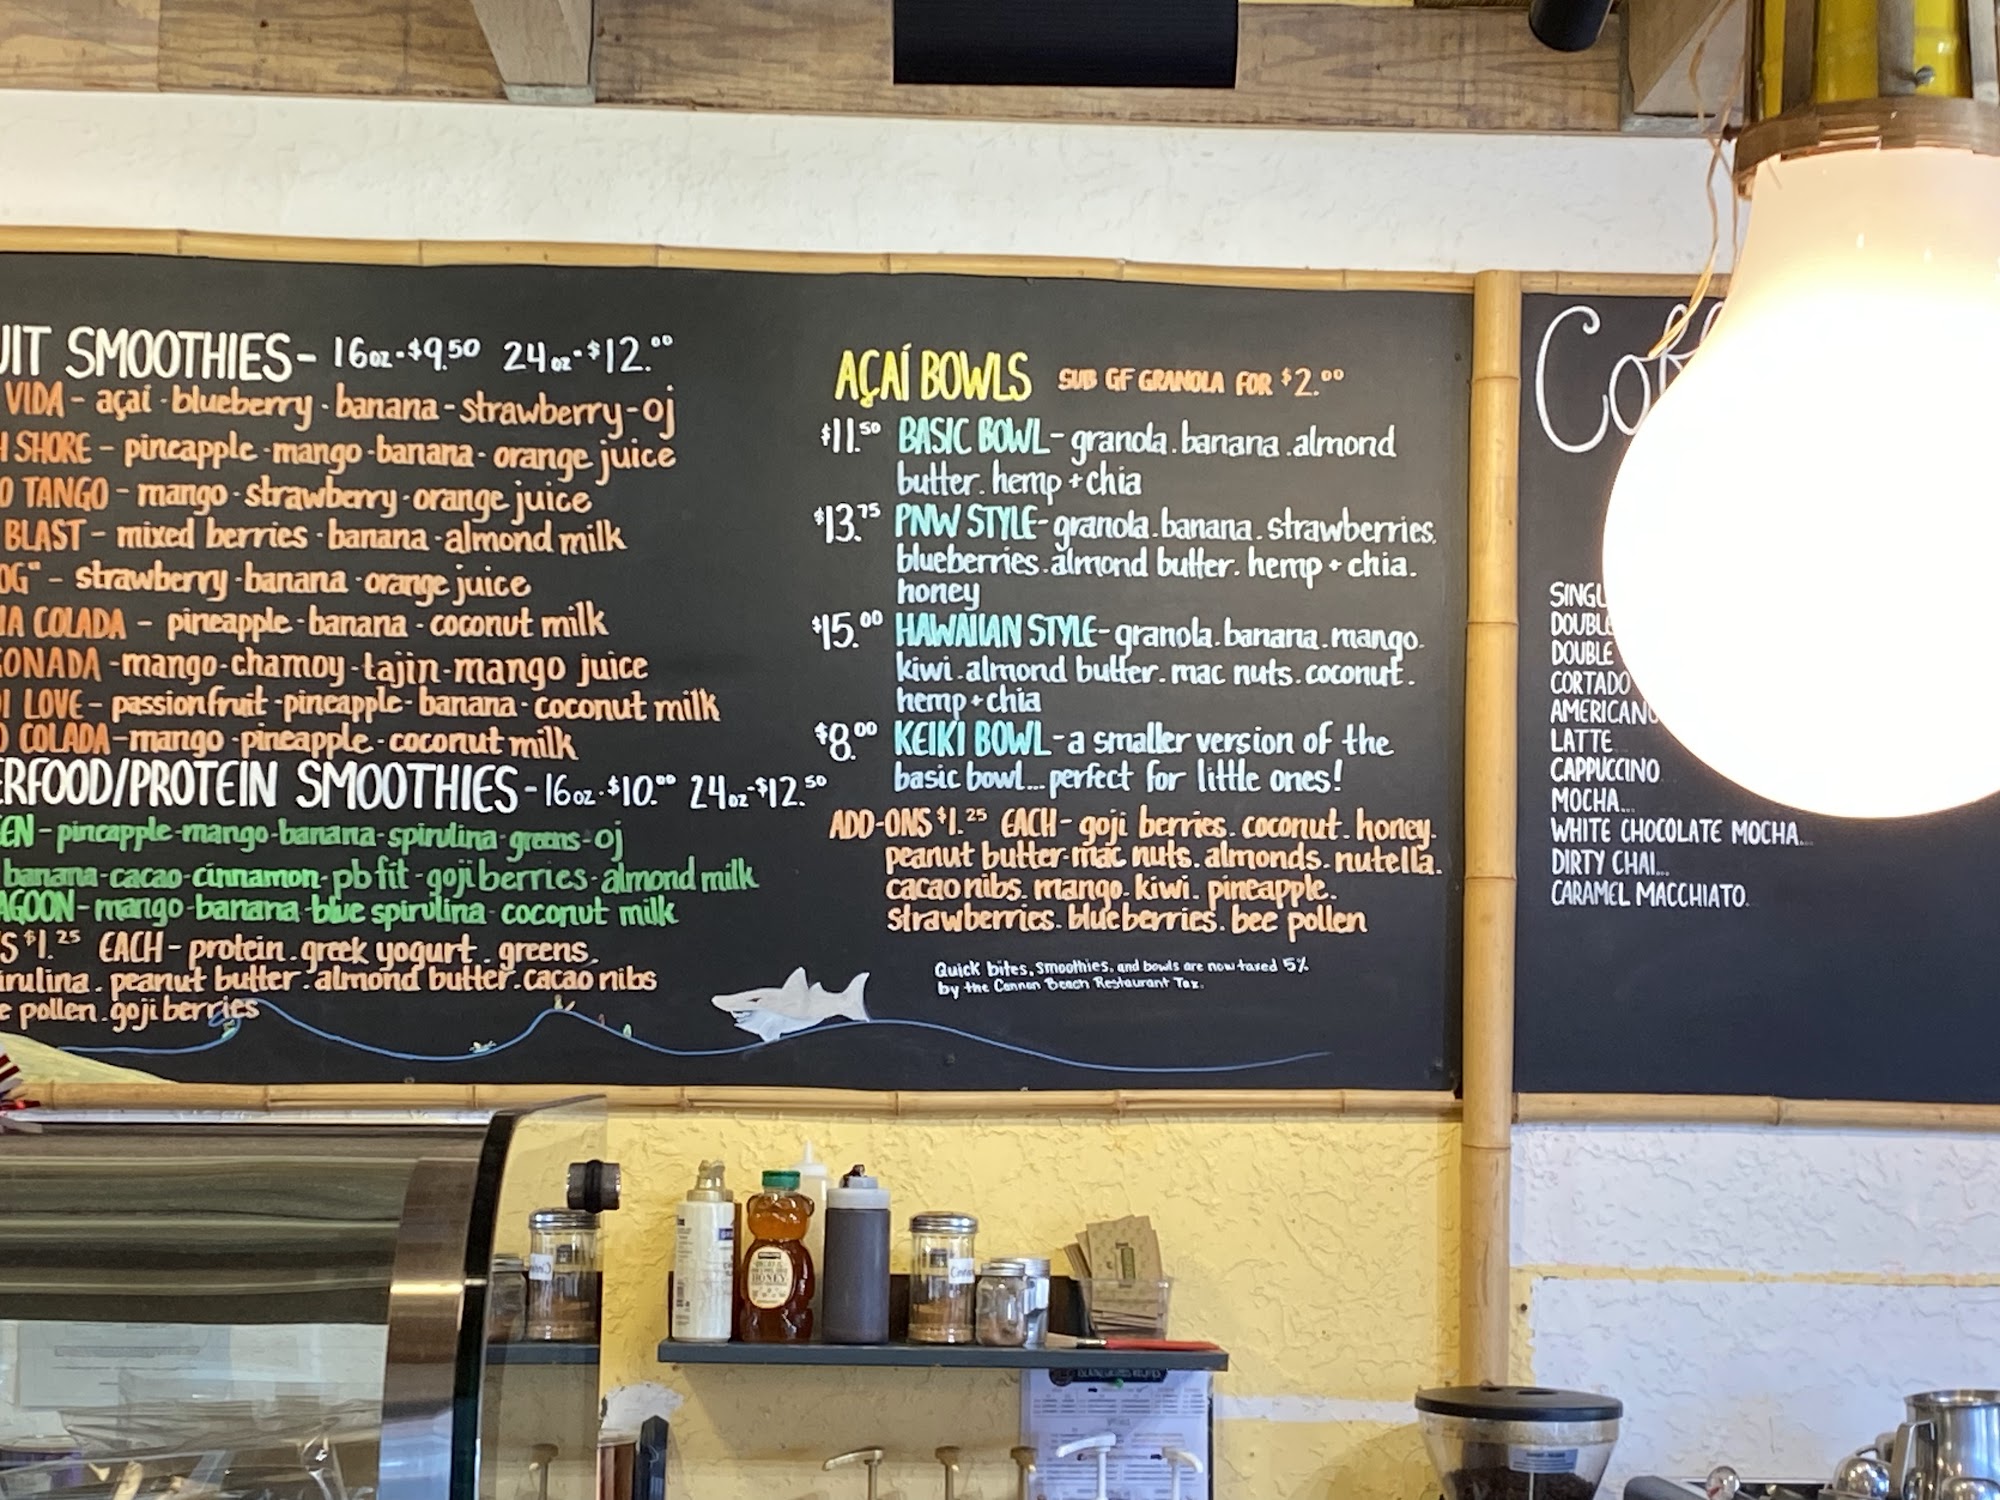 SMOOTHIES- 16oz-$9.50 24oz-$12.00
VIDA - açaí - blueberry - banana - strawberry - oj
SHORE - pineapple - mango - banana - orange juice
TANGO - mango - strawberry - orange juice
BLAST - mixed berries - banana - almond milk
- strawberry - banana - orange juice
COLADA - pineapple - banana - coconut milk
-mango-chamoy-tajin-mango juice
LOVE - passionfruit - pineapple - banana - coconut milk
COLADA-mango-pineapple-coconut milk
/PROTEIN SMOOTHIES - 16oz-$10.00 24oz-$12.50
- pineapple-mango-banana-spirulina-greens-oj
banana-cacao-cinnamon-pb fit-goji berries-almond milk
- mango-banana-blue spirulina-coconut milk
$1.25 EACH - protein. greek yogurt. greens.
peanut butter. almond butter. cacao nibs
pollen. goji berries
AÇAÍ BOWLS SUB GF GRANOLA FOR $2.00
$11.50 BASIC BOWL - granola. banana. almond
butter. hemp + chia
$13.75 PNW STYLE - granola. banana. strawberries.
blueberries. almond butter. hemp + chia.
honey
$15.00 HAWAIIAN STYLE - granola. banana. mango.
kiwi. almond butter. mac nuts. coconut.
hemp + chia
$8.00 KEIKI BOWL - a smaller version of the
basic bowl... perfect for little ones!
ADD-ONS $1.25 EACH - goji berries. coconut. honey.
peanut butter. mac nuts. almonds. nutella.
cacao nibs. mango. kiwi. pineapple.
strawberries. blueberries. bee pollen
Quick bites, smoothies, and bowls are now taxed 5%
by the Cannon Beach Restaurant Tax.
DOUBLE
DOUBLE
CORTADO
AMERICANO
LATTE
CAPPUCCINO
MOCHA...
WHITE CHOCOLATE MOCHA...
DIRTY CHAI...
CARAMEL MACCHIATO.
HONEY